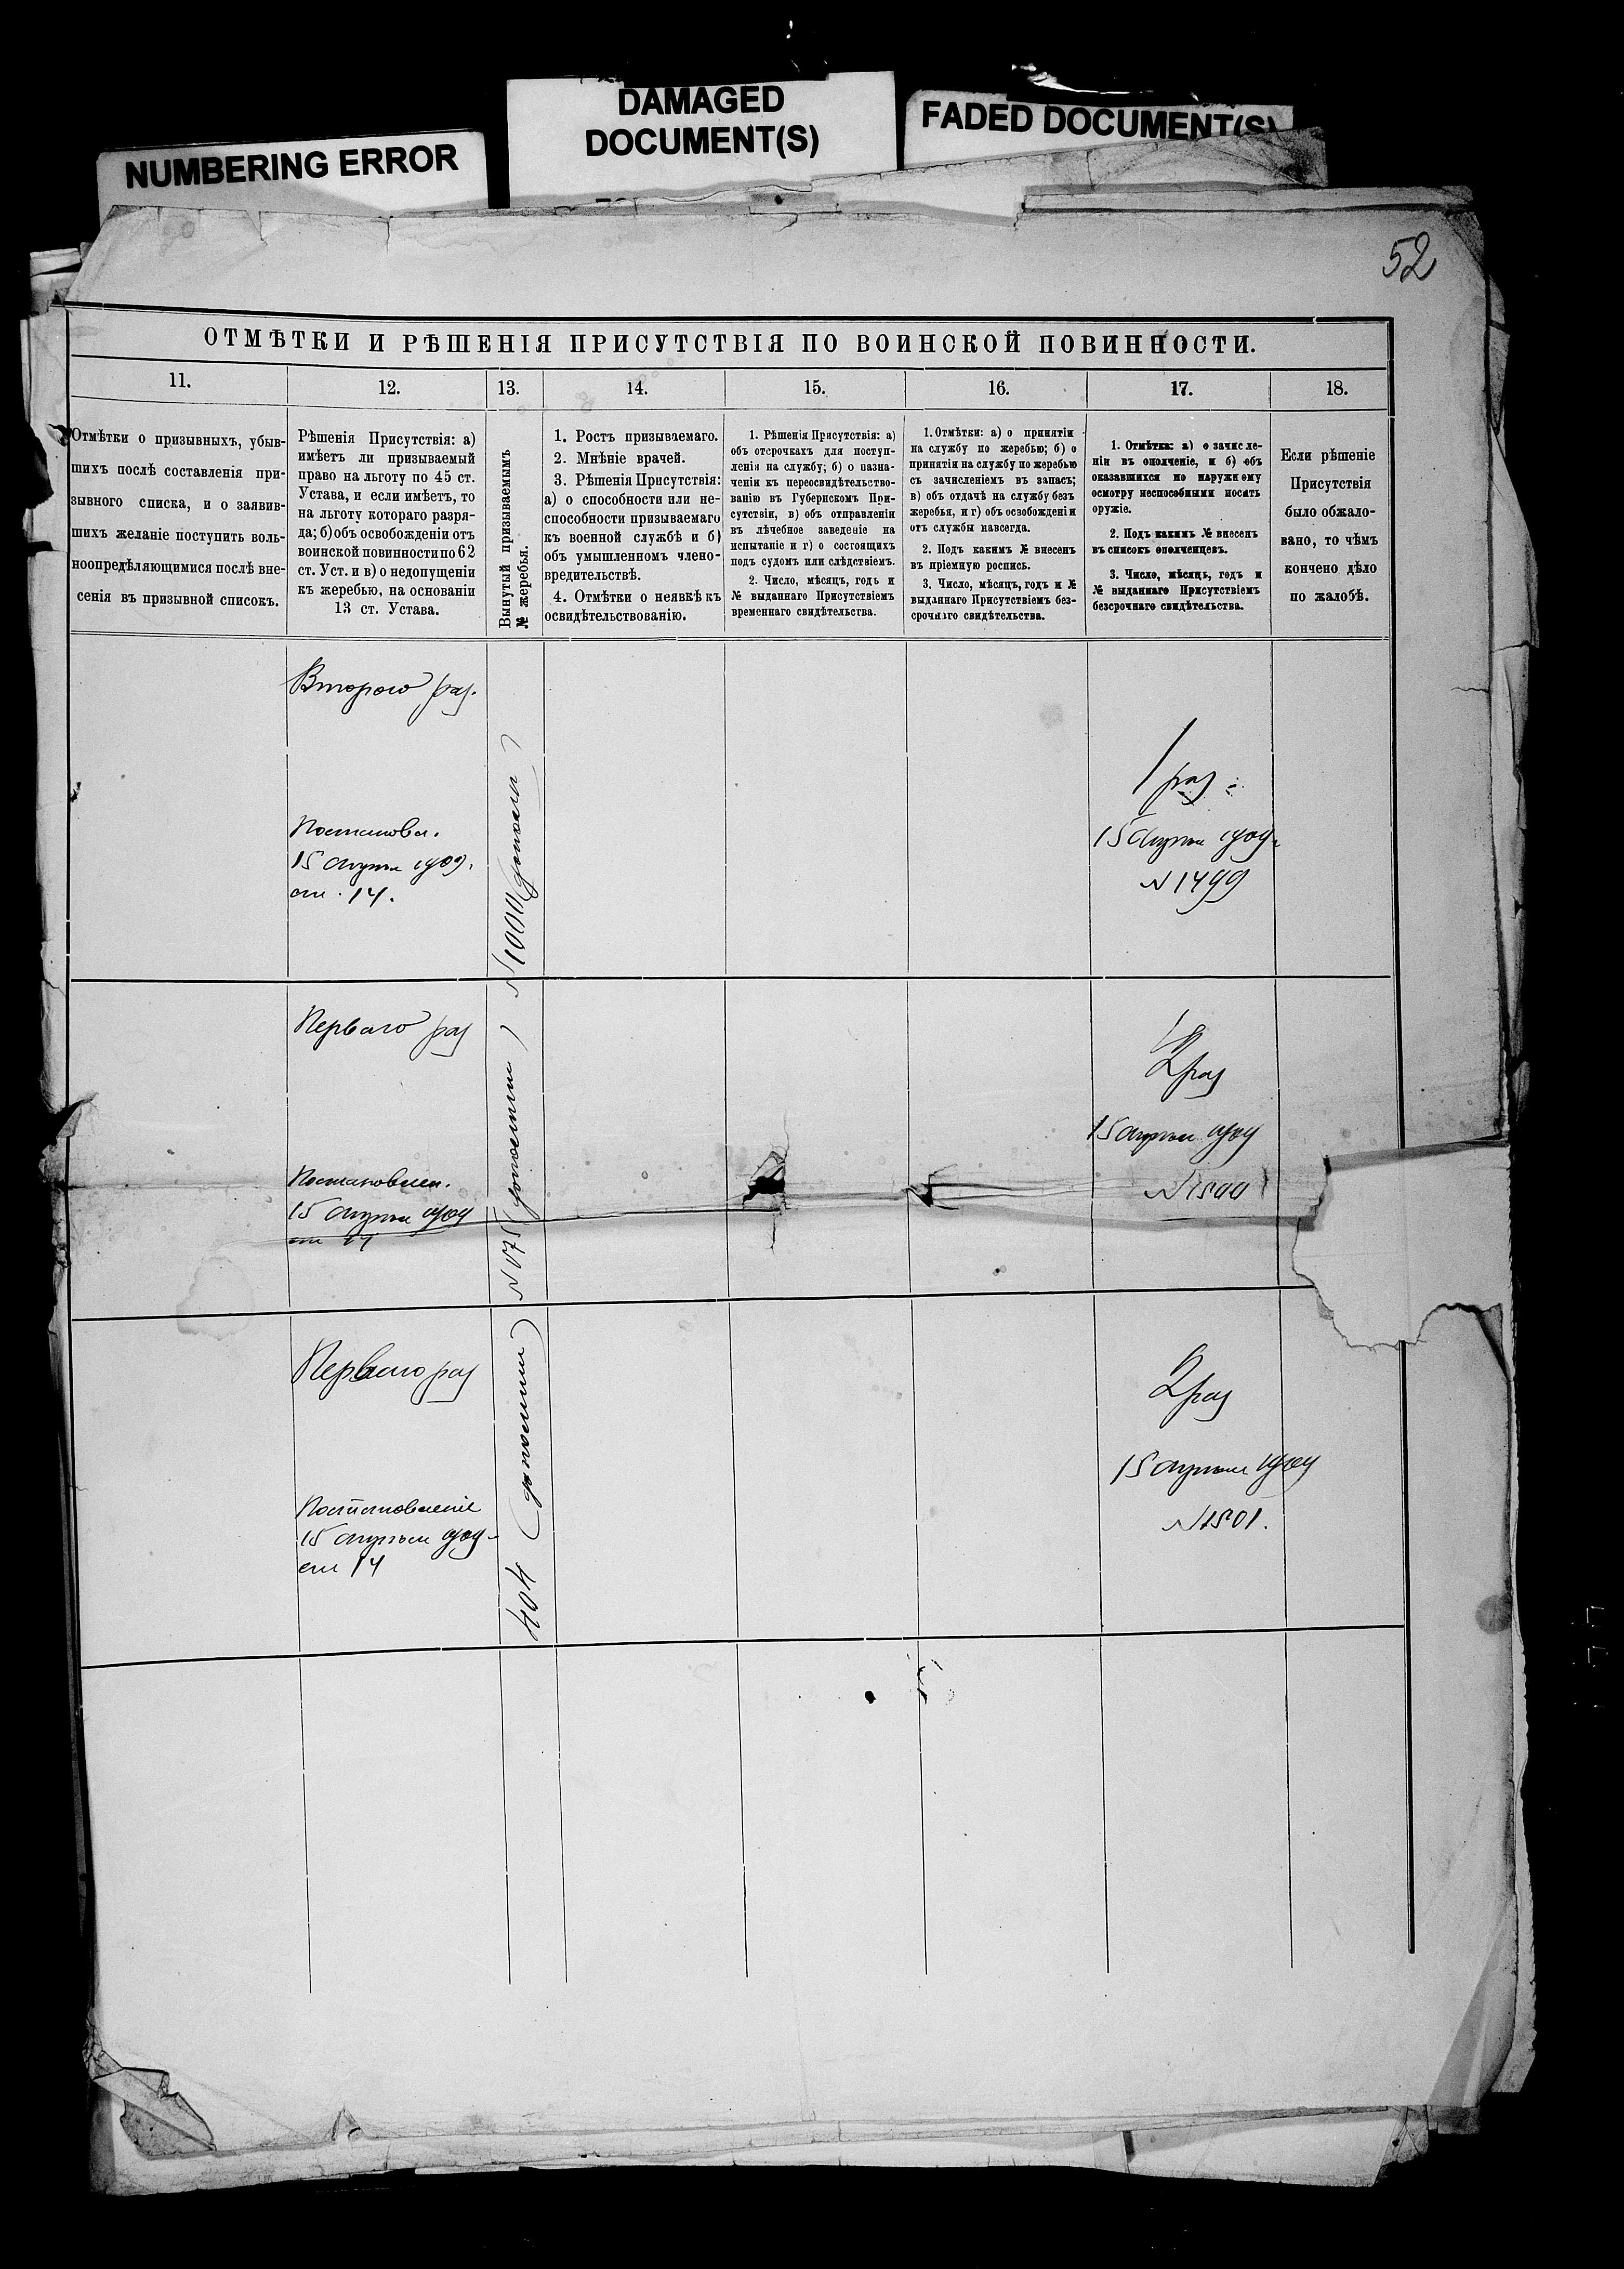 NUMBERING ERROR
DAMAGED
DOCUMENT(S)
FADED DOCUMENT(S)
52
ОТМѢТКИ И РѢШЕНІЯ ПРИСУТСТВІЯ ПО ВОИНСКОЙ ПОВИННОСТИ.
11.
12.
13.
14.
15.
16.
17.
18.
Отмѣтки о призывныхъ, убыв-
шихъ послѣ составленія при-
зывного списка, и о заявив-
шихъ желаніе поступить воль-
ноопредѣляющимися послѣ вне-
сенія въ призывной списокъ.
Рѣшенія Присутствія: а)
имѣетъ ли призываемый
право на льготу по 45 ст.
Устава, и если имѣетъ, то
на льготу котораго разря-
да; б) объ освобожденіи отъ
воинской повинности по 62
ст. Уст. и в) о недопущеніи
къ жеребью, на основаніи
13 ст. Устава.
Вынутый призываемымъ
№ жеребья.
1. Ростъ призываемаго.
2. Мнѣніе врачей.
3. Рѣшенія Присутствія:
а) о способности или не-
способности призываемаго
къ военной службѣ и б)
объ умышленномъ члено-
вредительствѣ.
4. Отмѣтки о неявкѣ къ
освидѣтельствованію.
1. Рѣшенія Присутствія: а)
объ отсрочкахъ для поступ-
ленія на службу; б) о назна-
ченіи къ переосвидѣтельство-
ванію въ Губернскомъ При-
сутствіи, в) объ отправленіи
въ лѣчебное заведеніе на
испытаніе и г) о состоящихъ
подъ судомъ или слѣдствіемъ.
2. Число, мѣсяцъ, годъ и
№ выданнаго Присутствіемъ
временнаго свидѣтельства.
1. Отмѣтки: а) о принятіи
на службу по жеребью; б) о
принятіи на службу по жеребью
съ зачисленіемъ въ запасъ;
в) объ отдачѣ на службу безъ
жеребья, и г) объ освобожденіи
отъ службы навсегда.
2. Подъ какимъ № внесенъ
въ пріемную роспись.
3. Число, мѣсяцъ, годъ и №
выданнаго Присутствіемъ без-
срочнаго свидѣтельства.
1. Отмѣтка: а) о зачисле-
ніи въ ополченіе, и б) объ
оказавшихся по наружному
осмотру неспособными носить
оружіе.
2. Подъ какимъ № внесенъ
въ списокъ ополченцевъ.
3. Число, мѣсяцъ, годъ и
№ выданнаго Присутствіемъ
безсрочнаго свидѣтельства.
Если рѣшеніе
Присутствія
было обжало-
вано, то чѣмъ
кончено дѣло
по жалобѣ.
Второго раз.
Постановл.
15 1909.
ст. 14.
1 раз.
15 1909.
N 1499
Перваго раз
Постановлен.
15 1909
ст 14
N 175
2 раз
15 1909
N 1500
Перваго раз
Постановленіе
15 1909
ст 14
404
2 раз
15 1909
N 1501.